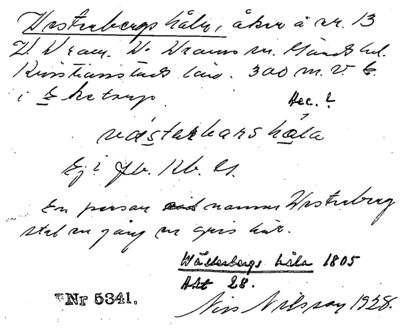 Westerbergs håla, åker å nr. 13
V. Vram. V. Vrams sn. Gärds hd.
Kristianstads län. 300 m. V. k.
i
Acc. ?
västerbars håla
Ej i Jb. Kb. Gl.
En person namn Westerberg
stal en gång en gris här.
Wästerbergs håla 1805
Akt 28.
Nr 5341.
Nils Nilsson 1928.